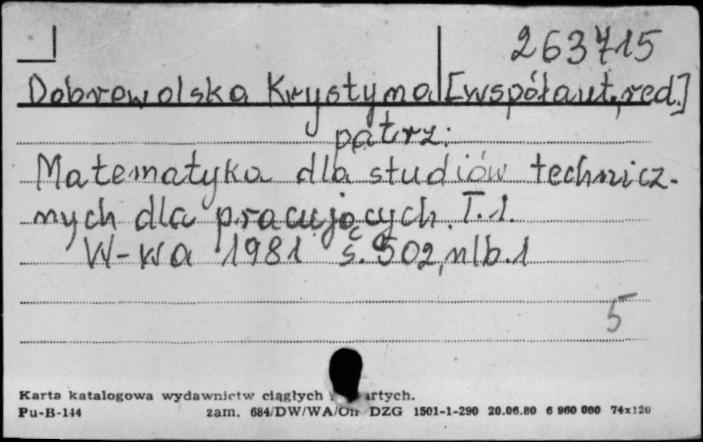 263715
Dobrowolska Krystyna [współaut., red.]
patrz:
Matematyka dla studiów technicz-
nych dla pracujących. T. 1.
W-wa 1981 s. 502, nlb. 1
5
Karta katalogowa wydawnictw ciągłych
Pu-B-144 zam. 684/DW/WA/On DZG 1501-1-290 20.06.80 6 960 000 74x120